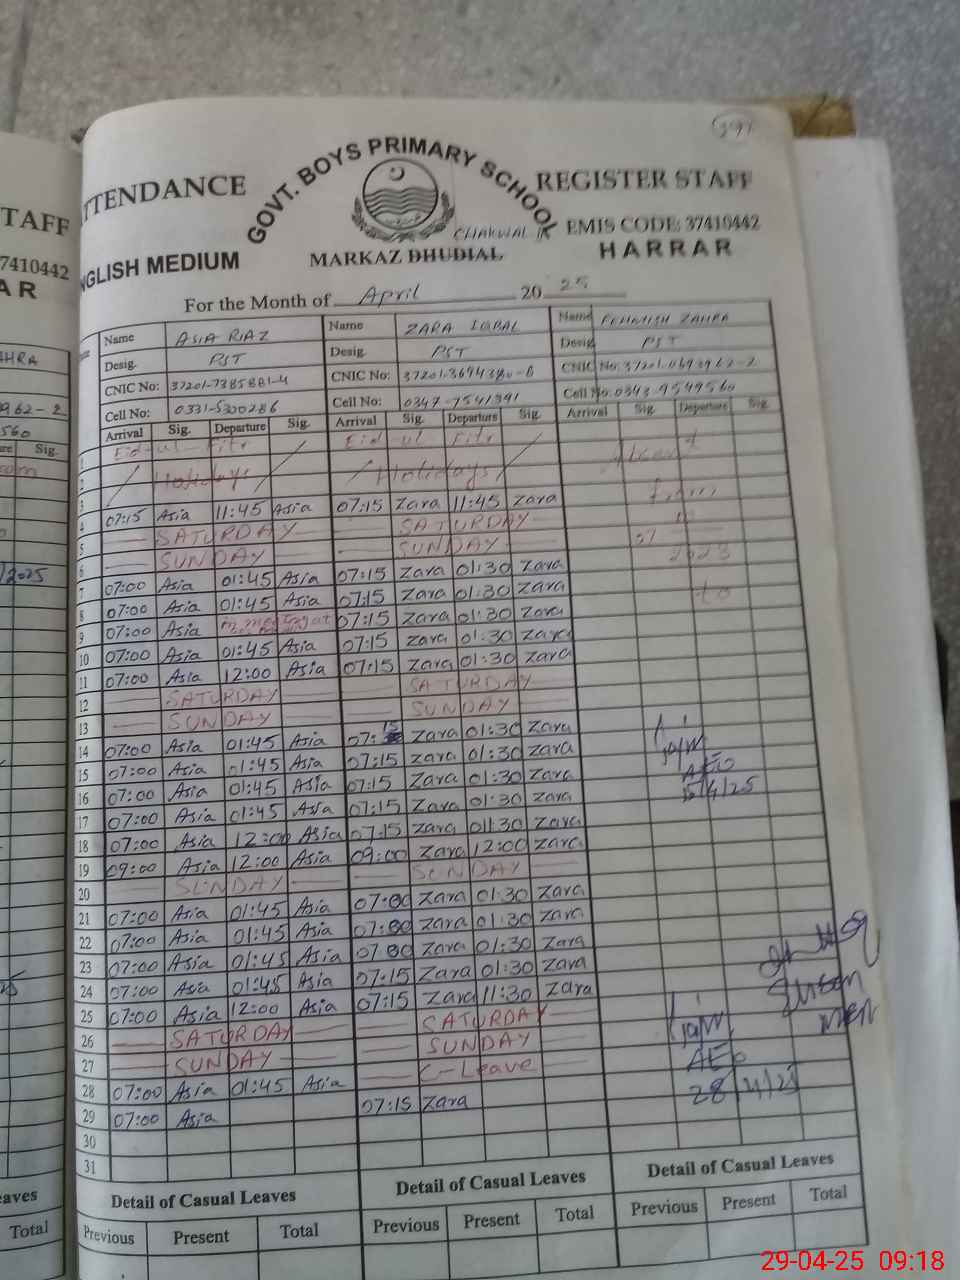 GOVT. BOYS PRIMARY SCHOOL
ATTENDANCE REGISTER STAFF
CHAKWAL
EMIS CODE: 37410442
ENGLISH MEDIUM MARKAZ DHUDIAL HARRAR
For the Month of April 2025
Name ASIA RIAZ Name ZARA IQBAL Name FEHMISH ZAHRA
Desig. PST Desig. PST Desig. PST
CNIC No: 37201-7385881-4 CNIC No: CNIC No:
Cell No: 0331-5300286 Cell No: 0347-7541391 Cell No: 0343-9549560
Arrival Sig. Departure Sig. Arrival Sig. Departure Sig. Arrival Sig. Departure Sig.
1 Eid-ul-Fitr Eid-ul-Fitr Absent
2 Holidays Holidays
3 from
4 07:15 Asia 11:45 Asia 07:15 Zara 11:45 Zara
5 SATURDAY SATURDAY
6 SUNDAY SUNDAY
7 07:00 Asia 01:45 Asia 07:15 Zara 01:30 Zara
8 07:00 Asia 01:45 Asia 07:15 Zara 01:30 Zara to
9 07:00 Asia 07:15 Zara 01:30 Zara
10 07:00 Asia 01:45 Asia 07:15 Zara 01:30 Zara
11 07:00 Asia 12:00 Asia 07:15 Zara 01:30 Zara
12 SATURDAY SATURDAY
13 SUNDAY SUNDAY
14 07:00 Asia 01:45 Asia 07:15 Zara 01:30 Zara
15 07:00 Asia 01:45 Asia 07:15 Zara 01:30 Zara AEO
16 07:00 Asia 01:45 Asia 07:15 Zara 01:30 Zara 15/4/25
17 07:00 Asia 01:45 Asia 07:15 Zara 01:30 Zara
18 07:00 Asia 12:00 Asia 07:15 Zara 01:30 Zara
19 09:00 Asia 12:00 Asia 09:00 Zara 12:00 Zara
20 SUNDAY SUNDAY
21 07:00 Asia 01:45 Asia 07:00 Zara 01:30 Zara
22 07:00 Asia 01:45 Asia 07:00 Zara 01:30 Zara
23 07:00 Asia 01:45 Asia 07:00 Zara 01:30 Zara
24 07:00 Asia 01:45 Asia 07:15 Zara 01:30 Zara
25 07:00 Asia 12:00 Asia 07:15 Zara 11:30 Zara
26 SATURDAY SATURDAY
27 SUNDAY SUNDAY AEO
28 07:00 Asia 01:45 Asia C-Leave 28/4/25
29 07:00 Asia 07:15 Zara
30
31
Detail of Casual Leaves Detail of Casual Leaves Detail of Casual Leaves
Previous Present Total Previous Present Total Previous Present Total
29-04-25 09:18